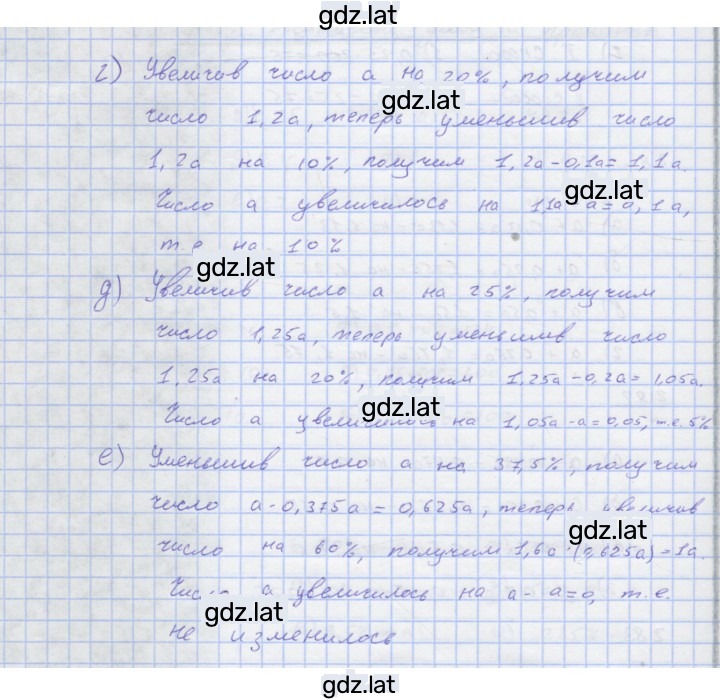 gdz.lat
г) Увеличив число а на 20%, получим
gdz.lat
число 1,2а, теперь уменьшив число
1,2а на 10%, получим 1,2а-0,1а=1,1а.
gdz.lat
Число а увеличилось на 1,1а-а=0,1а,
т.е на 10%
gdz.lat
д) Увеличив число а на 25%, получим
число 1,25а, теперь уменьшив число
1,25а на 20%, получим 1,25а-0,2а=1,05а.
gdz.lat
Число а увеличилось на 1,05а-а=0,05, т.е. 5%
е) Уменьшив число а на 37,5%, получим
число а-0,375а=0,625а, теперь увеличив
gdz.lat
число на 60%, получим 1,6а·(0,625а)=1а.
а увеличилось на а-а=0, т.е.
gdz.lat
не изменилось
gdz.lat